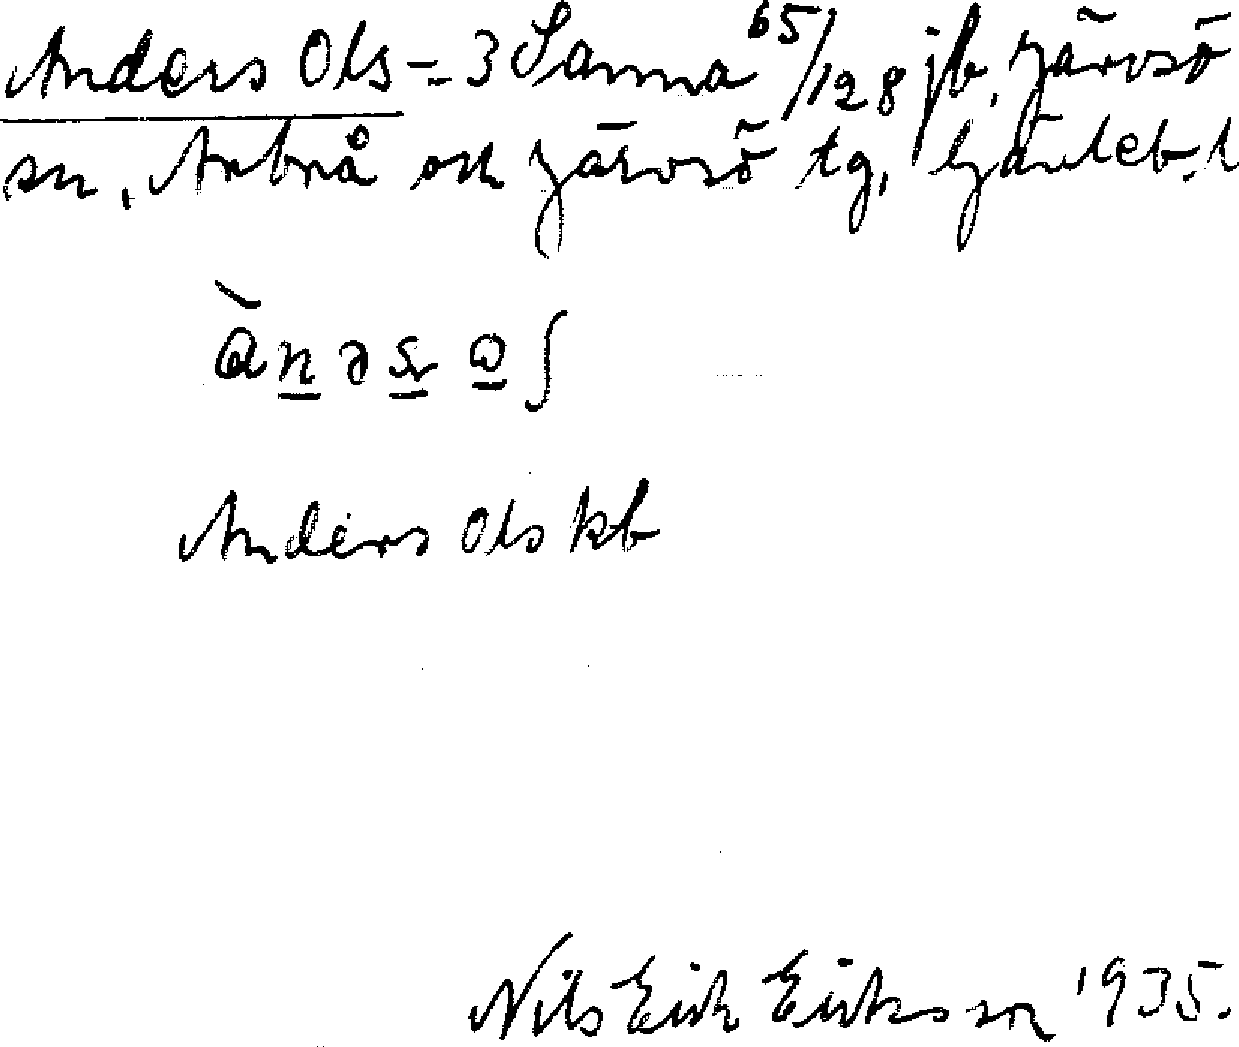 Anders Ols = 3 Sanna 65/128 jb, Järvsö
sn, Arbrå och Järvsö tg, Gävleb. l
ànəs͟r o͟ʃ
Anders Ols kb
Nils Erik Eriksson 1935.